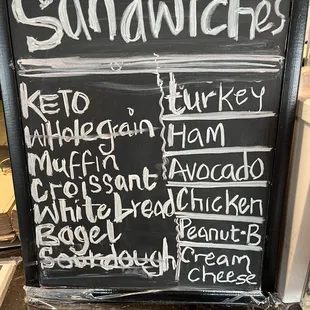 Sandwiches
KETO
Wholegrain
Muffin
Croissant
White bread
Bagel
Sourdough
turkey
HAM
AVOCADO
CHICKEN
Peanut-B
Cream
CHEESE